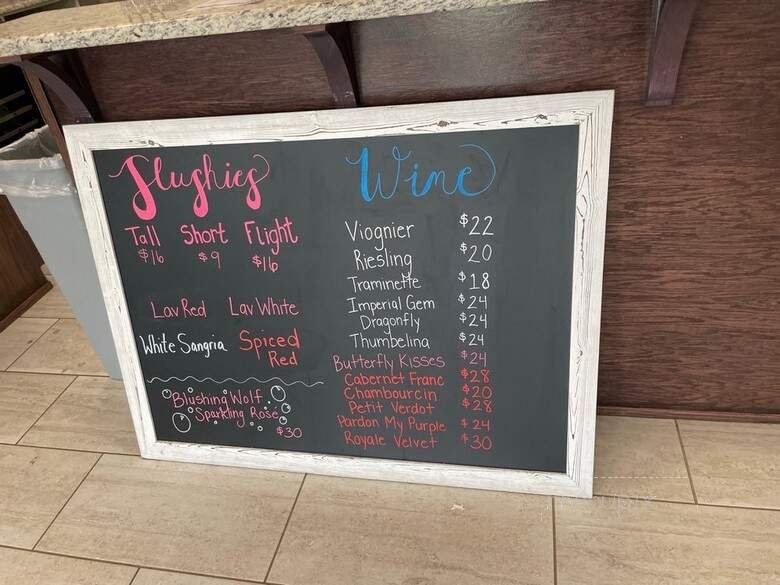 Slushies
Tall Short Flight
$16 $9 $16
Lav Red Lav White
White Sangria Spiced
Red
Blushing Wolf
Sparkling Rosé
$30
Wine
Viognier $22
Riesling $20
Traminette $18
Imperial Gem $24
Dragonfly $24
Thumbelina $24
Butterfly Kisses $24
Cabernet Franc $28
Chambourcin $20
Petit Verdot $28
Pardon My Purple $24
Royale Velvet $30